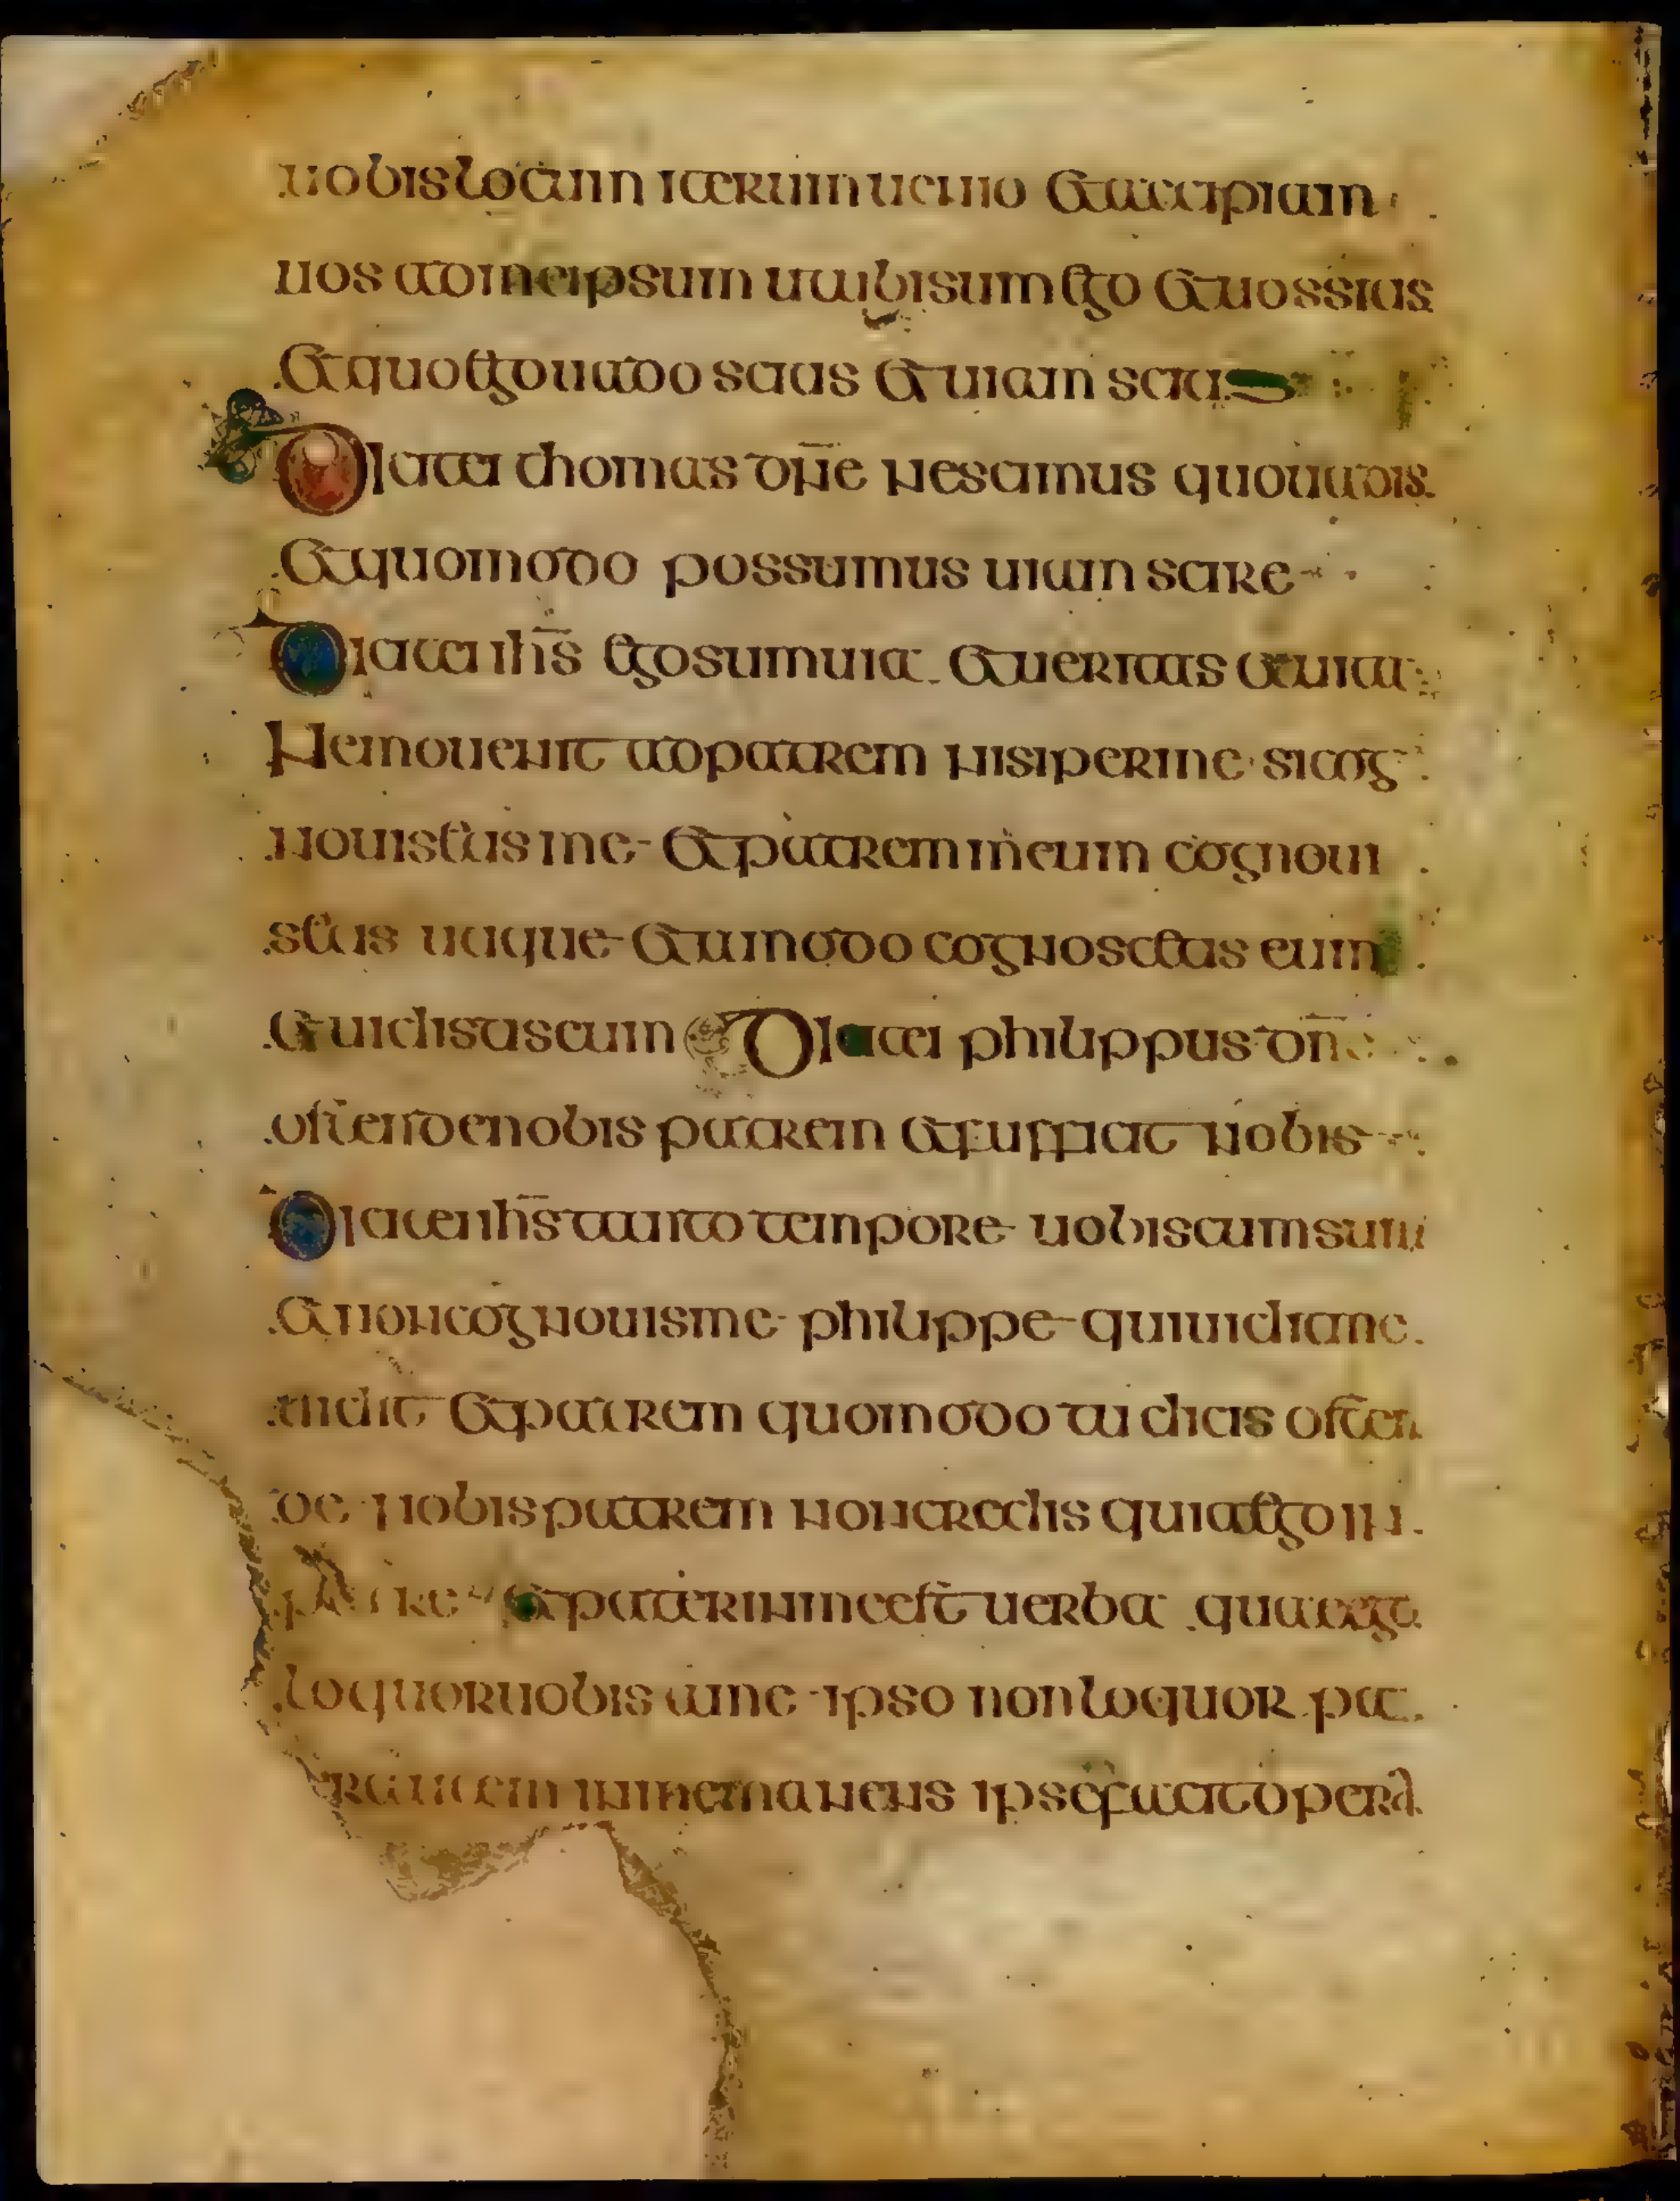 uobis locum iterum uenio et accipiam
uos ad me ipsum ut ubi sum ego et uos sitis
et quo ego uado scitis et uiam scitis
Dicit ei thomas dn̄e nescimus quo uadis
et quomodo possumus uiam scire
Dicit ei ihs̄ ego sum uia et ueritas et uita
Nemo uenit ad patrem nisi per me si cog
nouistis me et patrem meum cognoui
stis utique et amodo cognoscetis eum
et uidistis eum Dicit ei philippus dn̄e
ostende nobis patrem et sufficit nobis
Dicit ei ihs̄ tanto tempore uobiscum sum
et non cognouis me philippe qui uidit me
uidit et patrem quomodo tu dicis osten
de nobis patrem non credis quia ego in
patre et pater in me est uerba quae ego
loquor uobis a me ipso non loquor pa
ter autem in me manens ipse facit opera